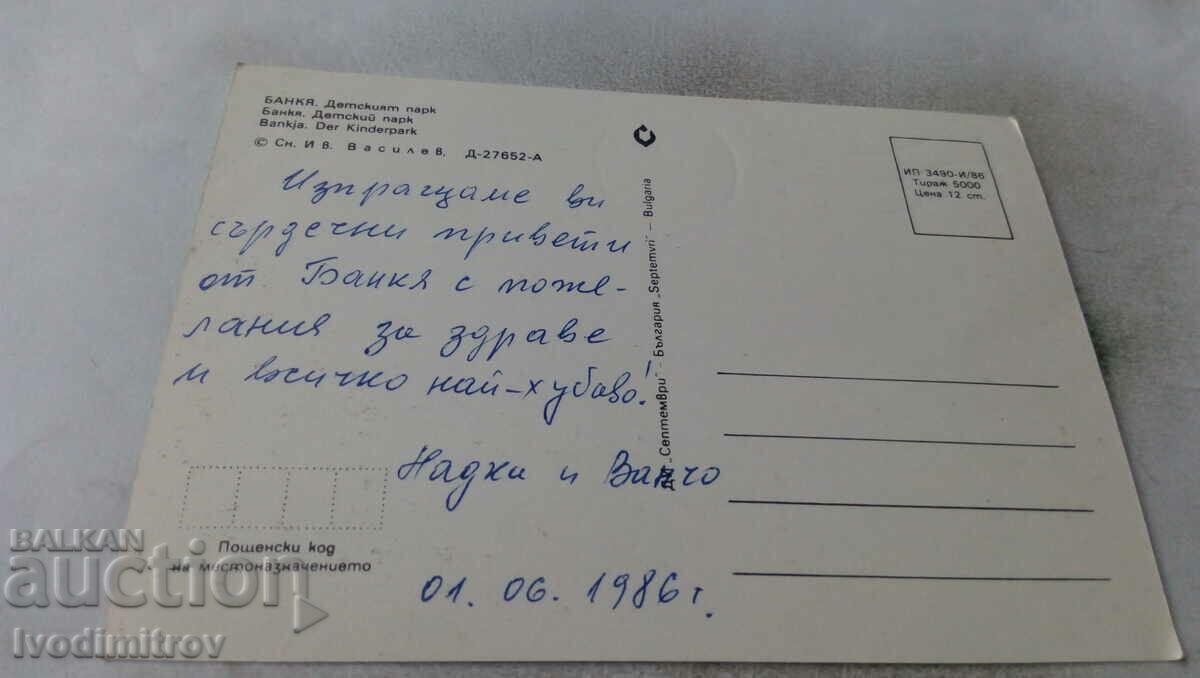 БАНКЯ. Детският парк
Банкя. Детский парк
Bankja. Der Kinderpark
© Сн. Ив. Василев, Д-27652-А
Изпращаме ви
сърдечни привети
от Банкя с поже-
лания за здраве
и всичко най-хубаво!
и Ванчо
01. 06. 1986 г.
Пощенски код
на местоназначението
ДИ „Септември“ – България „Septemvri“ – Bulgaria
ИП 3490-И/86
Тираж 5000
Цена 12 ст.
BALKAN
auction
Ivodimitrov